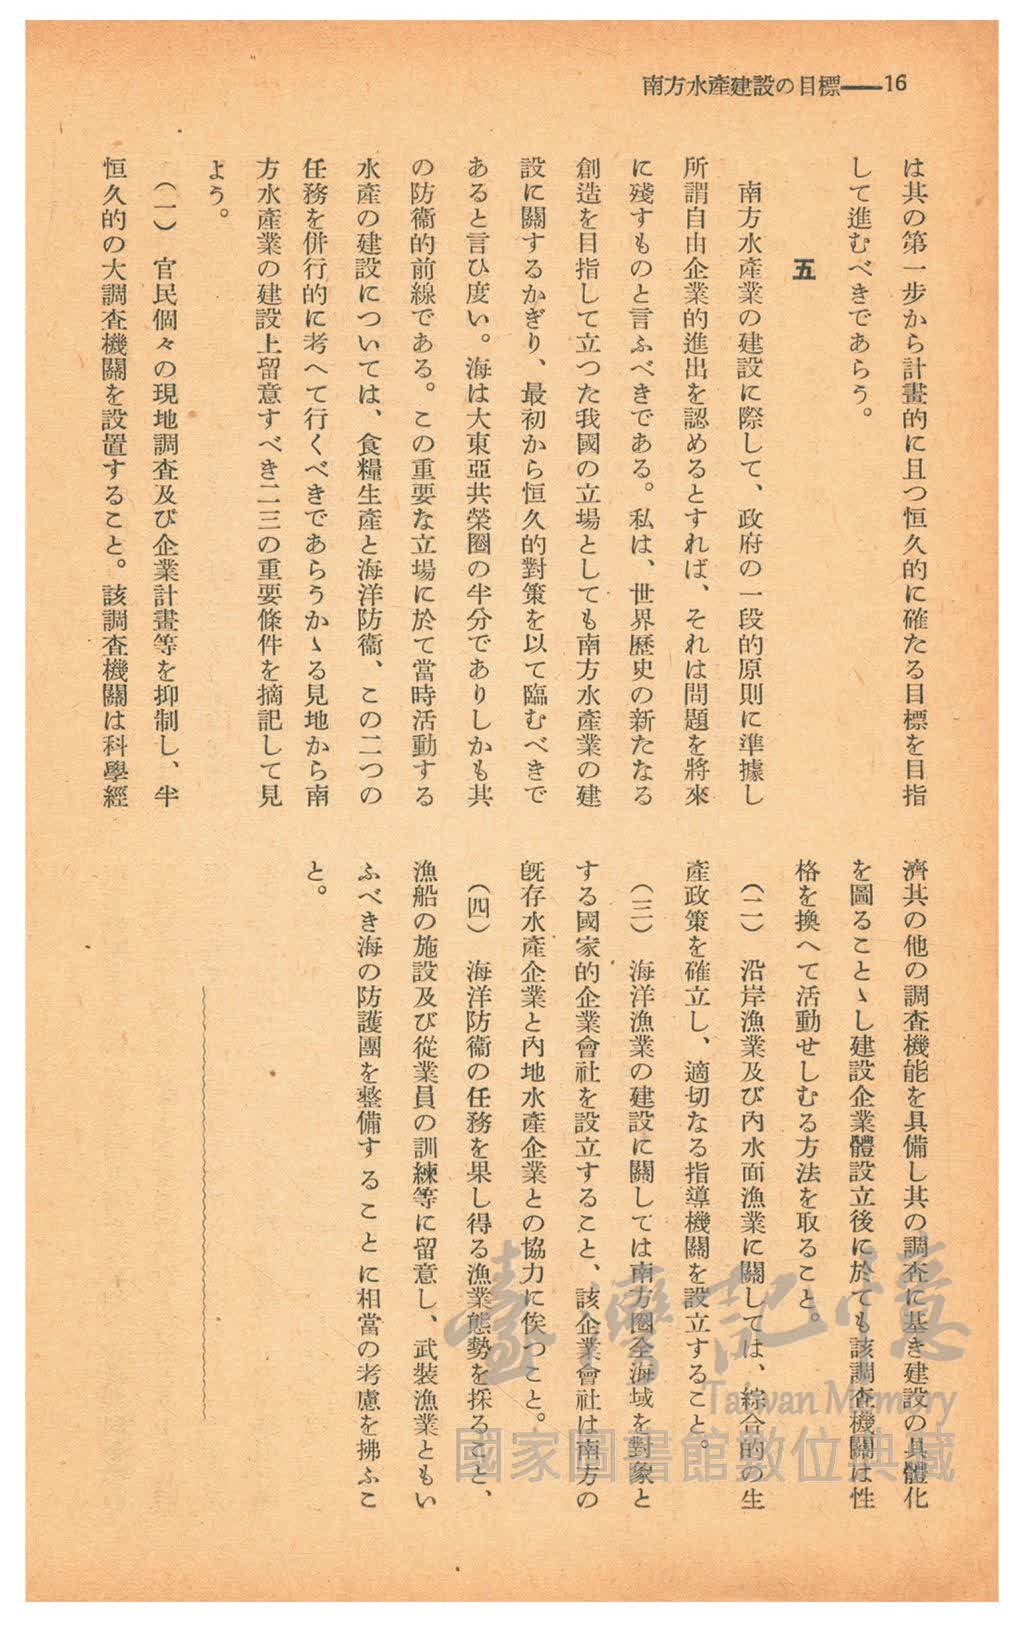 南方水產建設の目標━━16
は其の第一步から計畫的に且つ恒久的に確たる目標を目指
して進むべきであらう。
五
南方水產業の建設に際して、政府の一段的原則に準據し
所謂自由企業的進出を認めるとすれば、それは問題を將來
に殘すものと言ふべきである。私は、世界歷史の新たなる
創造を目指して立つた我國の立場としても南方水產業の建
設に關するかぎり、最初から恒久的對策を以て臨むべきで
あると言ひ度い。海は大東亞共榮圈の半分でありしかも共
の防衞的前線である。この重要な立場に於て當時活動する
水產の建設については、食糧生產と海洋防衞、この二つの
任務を併行的に考へて行くべきであらうかゝる見地から南
方水產業の建設上留意すべき二三の重要條件を摘記して見
よう。
(一)　官民個々の現地調查及び企業計畫等を抑制し、半
恒久的の大調查機關を設置すること。該調查機關は科學經
濟其の他の調查機能を具備し其の調查に基き建設の具體化
を圖ることゝし建設企業體設立後に於ても該調查機關は性
格を換へて活動せしむる方法を取ること。
(二)　沿岸漁業及び內水面漁業に關しては、綜合的の生
產政策を確立し、適切なる指導機關を設立すること。
(三)　海洋漁業の建設に關しては南方圈全海域を對象と
する國家的企業會社を設立すること、該企業會社は南方の
旣存水產企業と內地水產企業との協力に俟つこと。
(四)　海洋防衞の任務を果し得る漁業態勢を採ること、
漁船の施設及び從業員の訓練等に留意し、武裝漁業ともい
ふべき海の防護團を整備することに相當の考慮を拂ふこ
と。
臺灣記憶
Taiwan Memory
國家圖書館數位典藏